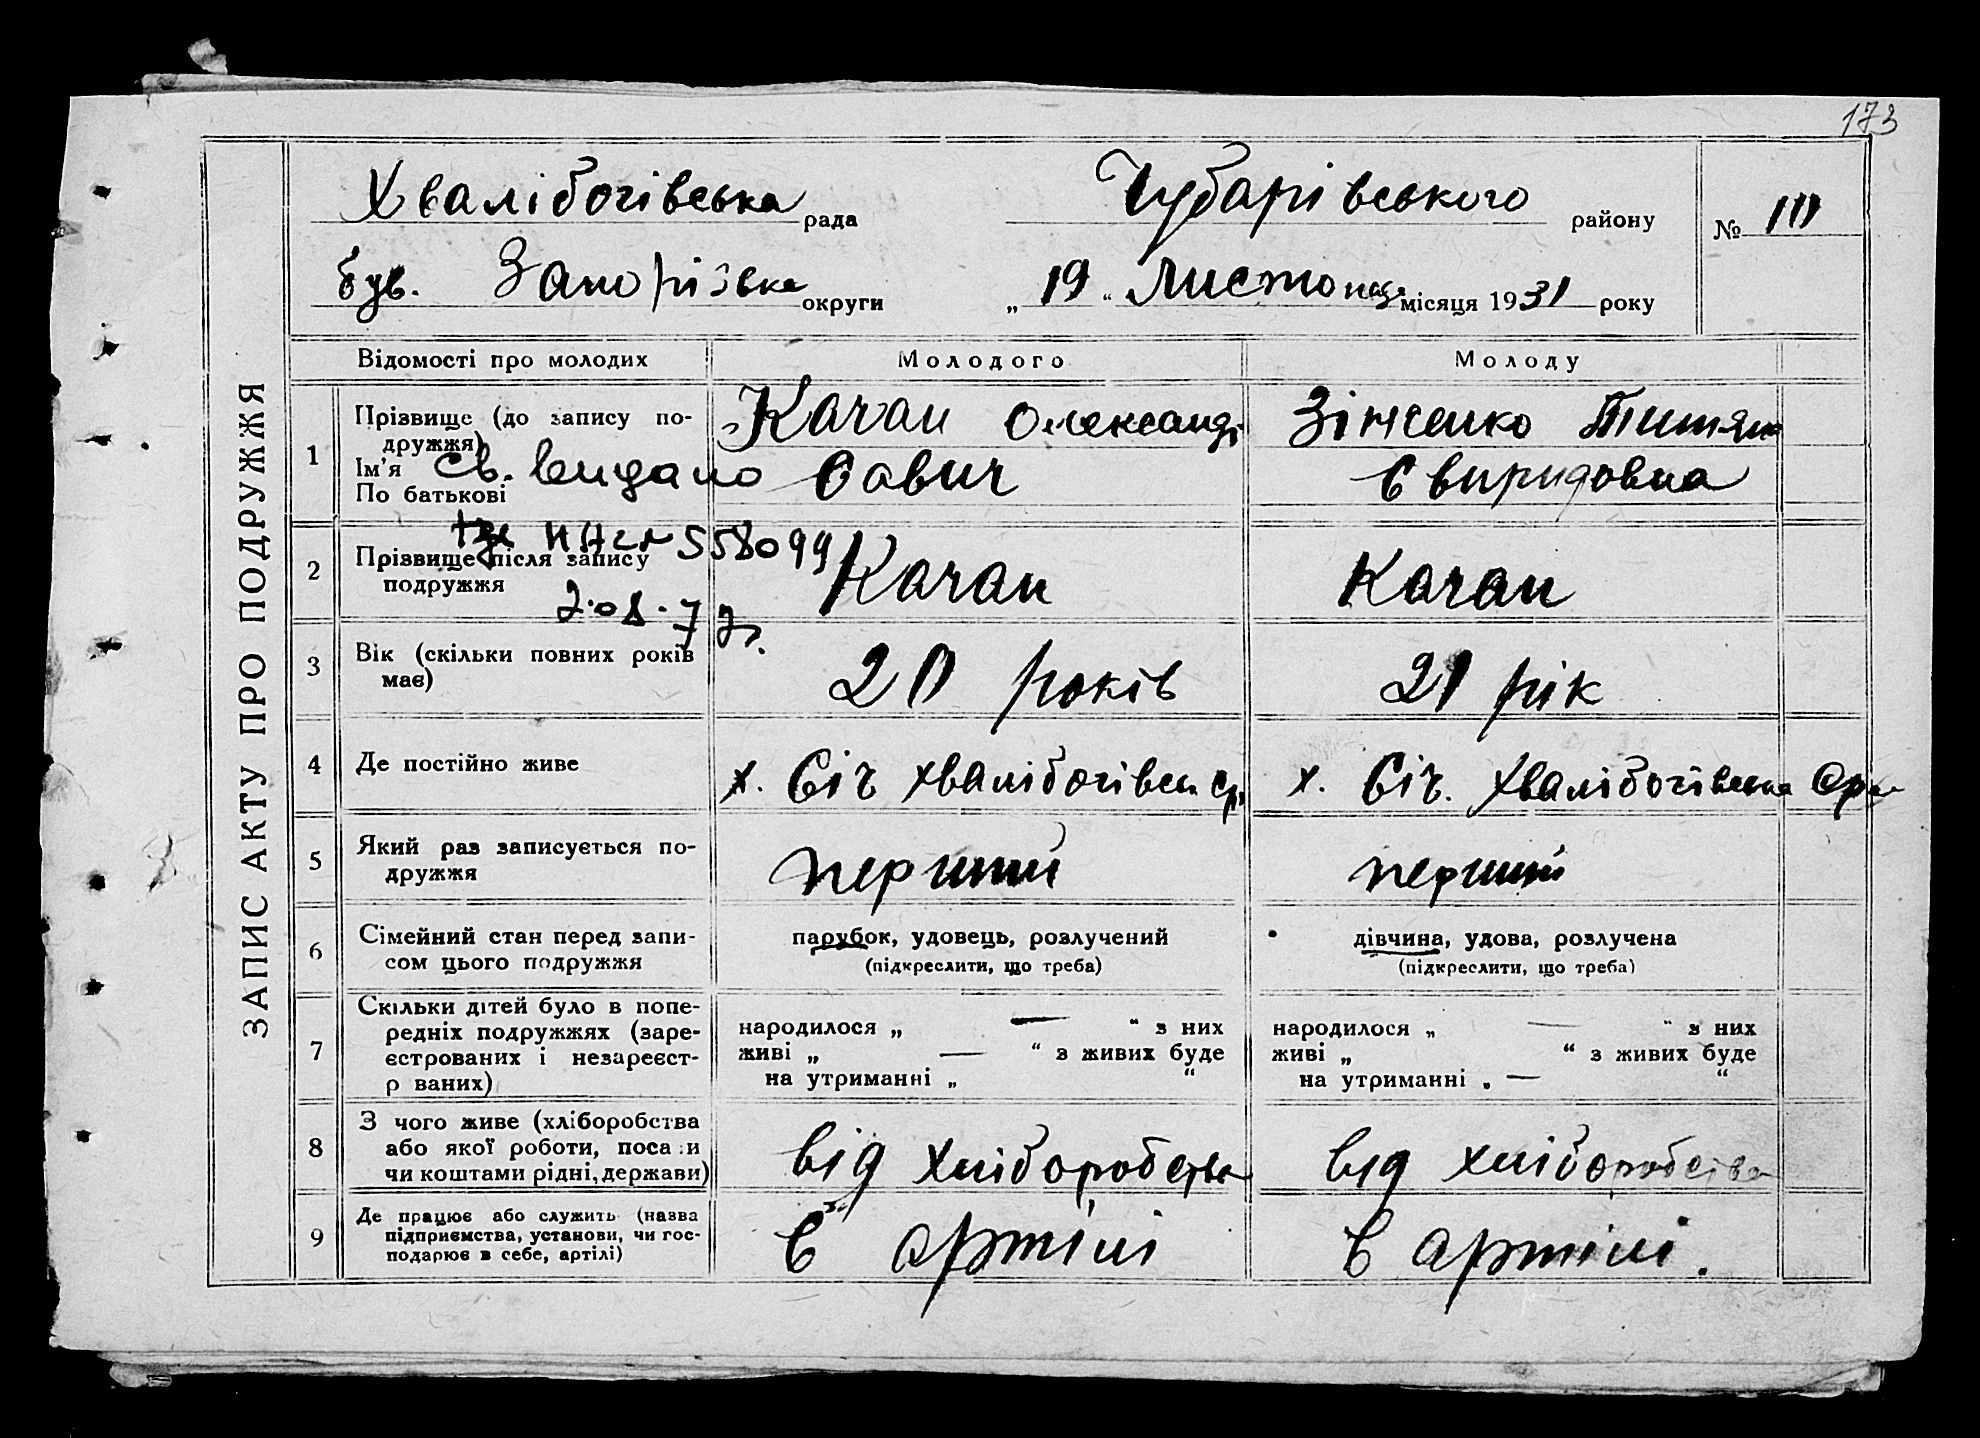 173
ЗАПИС АКТУ ПРО ПОДРУЖЖЯ
Хвалібогівська рада Чубарівського району № 111
був. Запорізька округи „ 19 “ Листопад місяця 1931 року
Відомості про молодих Молодого Молоду
1 Прізвище (до запису подружжя) Качан Олександр Зінченко Титяна
Ім'я Св. видано Савич Свиридовна
По батькові
558099
2 Прізвище після запису подружжя Качан Качан
2.08.77г.
3 Вік (скільки повних років має) 20 років 21 рік
4 Де постійно живе х. Січ Хвалібогівськ с/р х. Січ. Хвалібогівська
5 Який раз записується подружжя перший перший
6 Сімейний стан перед записом цього подружжя парубок, удовець, розлучений дівчина, удова, розлучена
(підкреслити, що треба) (підкреслити, що треба)
7 Скільки дітей було в попередніх подружжях (зареєстрованих і незареєстр ваних)
народилося „ — “ з них народилося „ — “ з них
живі „ — “ з живих буде живі „ “ з живих буде
на утриманні „ “ на утриманні „ — “
8 З чого живе (хліборобства або якої роботи, поса и чи коштами рідні, держави) від хліборобства від хліборобства
9 Де працює або служить (назва підприємства, установи, чи господарює в себе, артілі) в артілі в артілі.